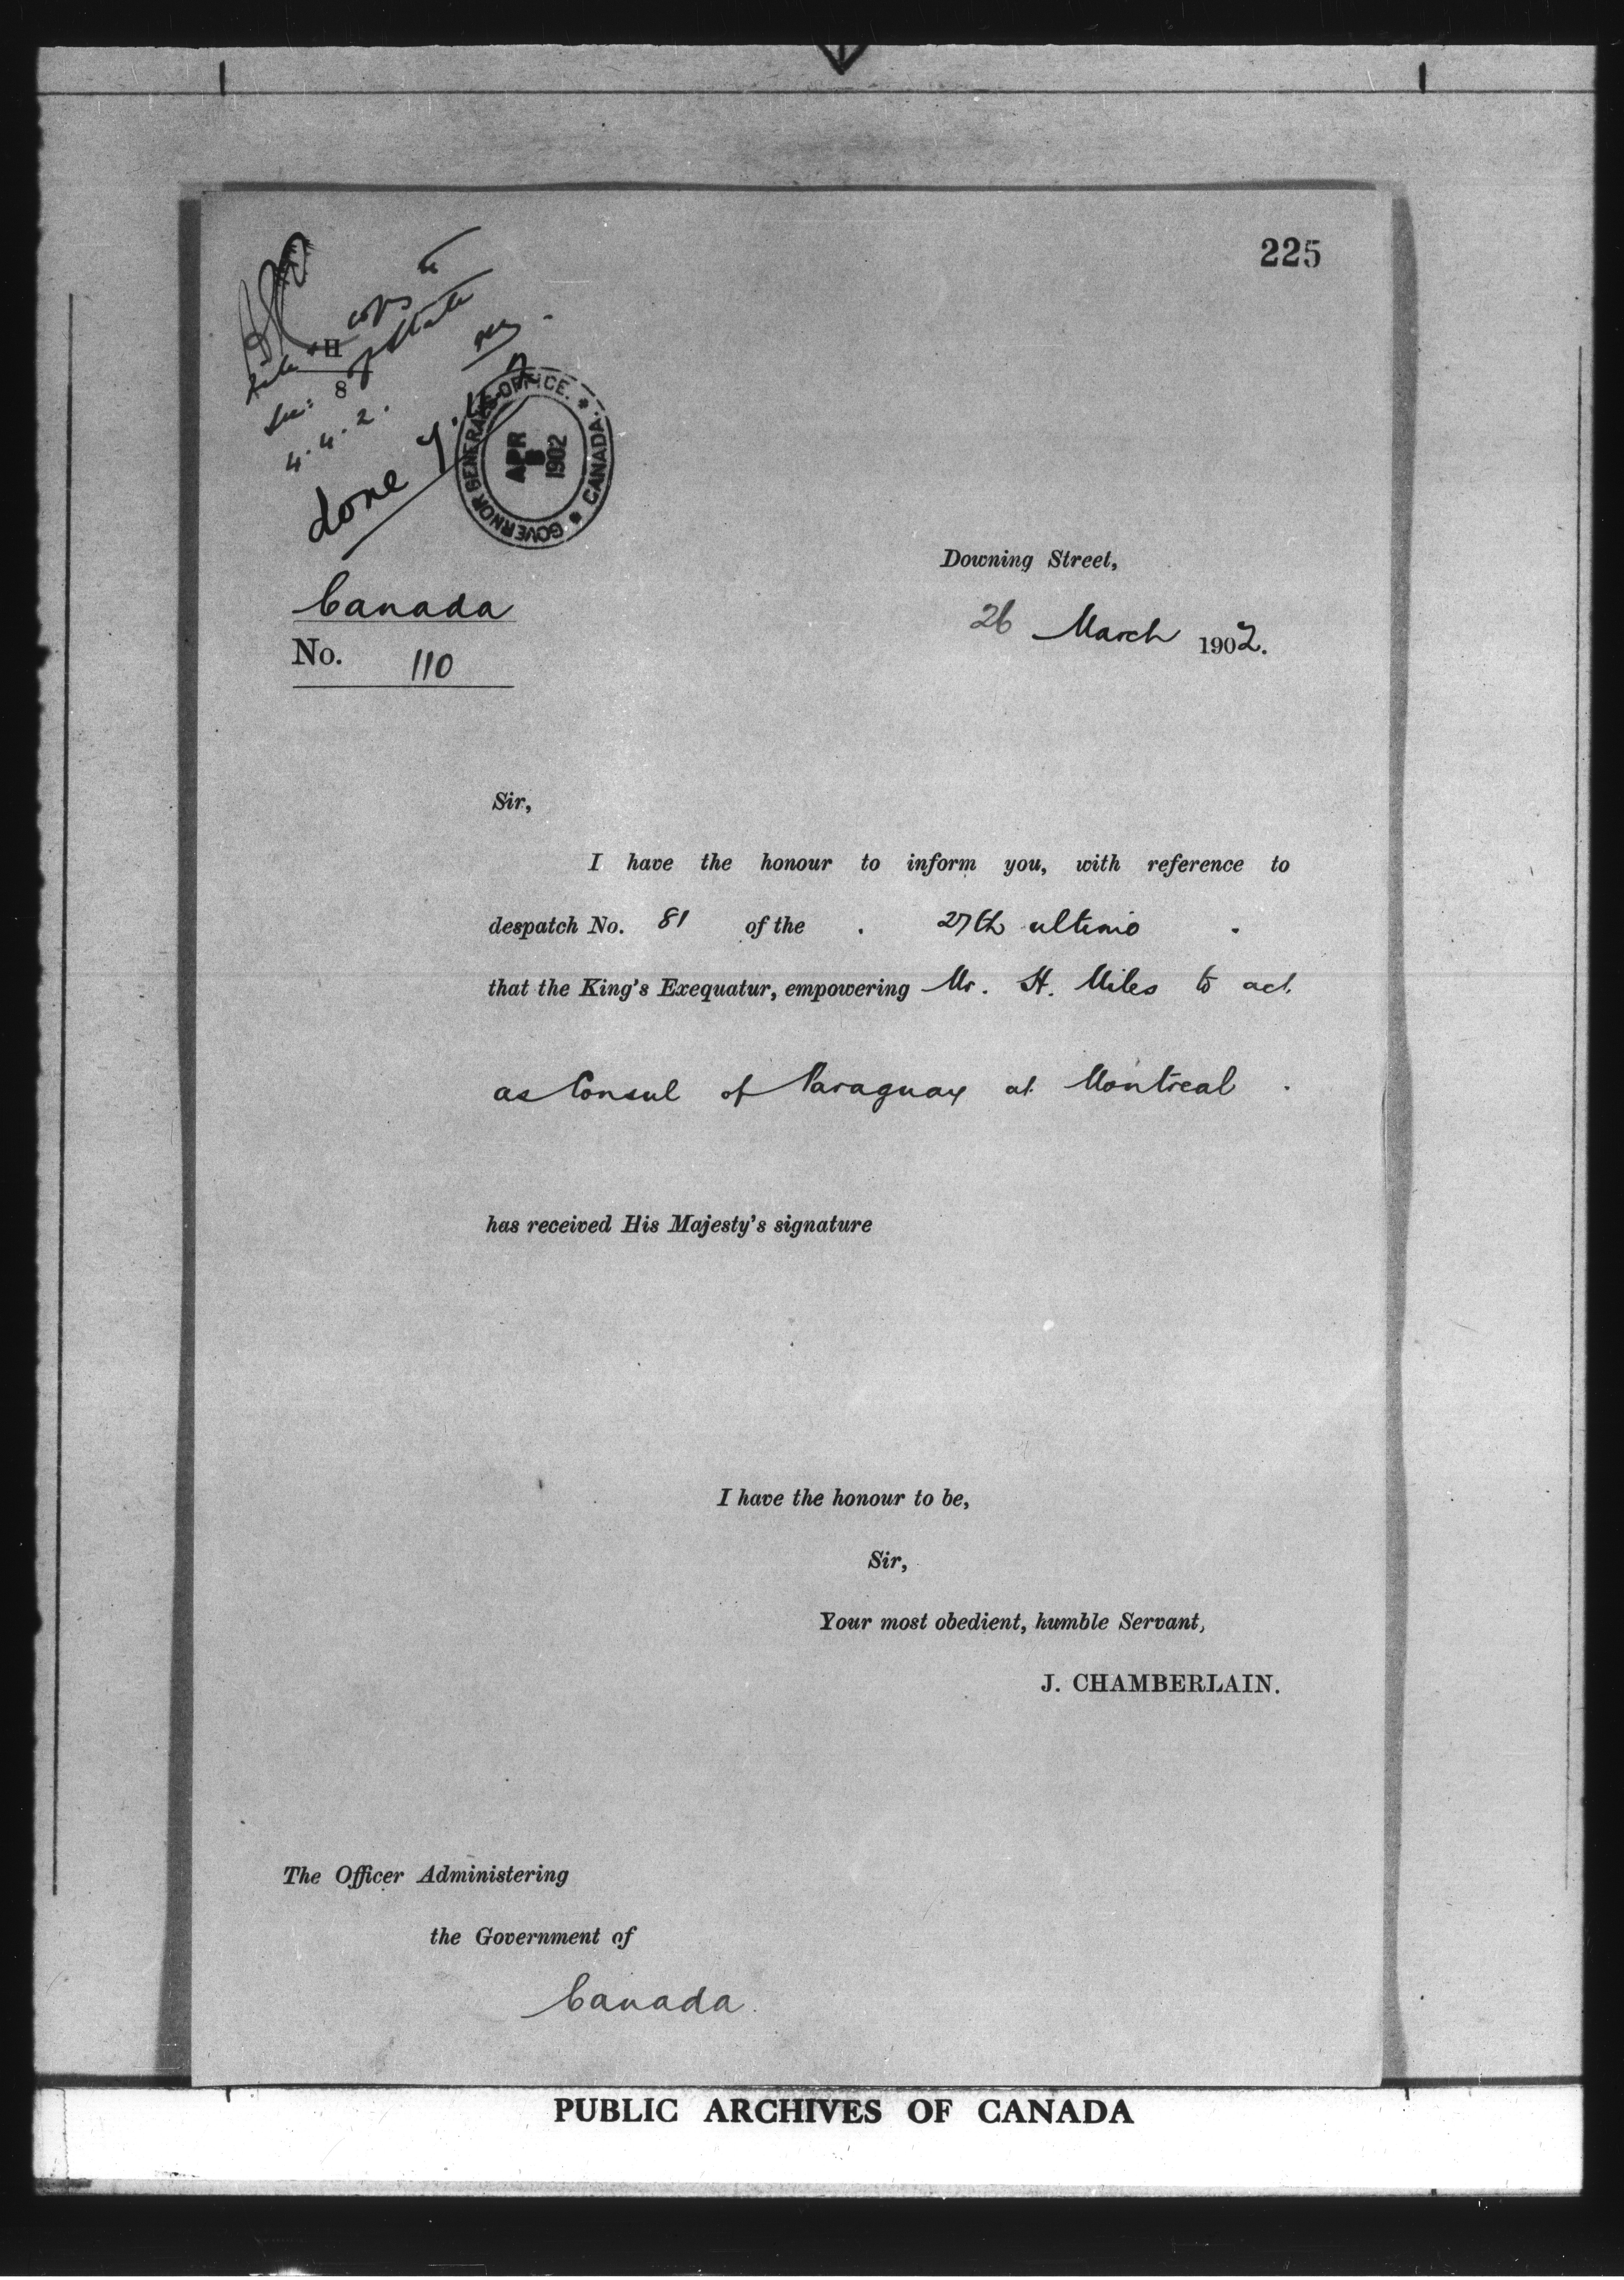 225
copy to
H
8 of State
4.4.2.
done
GOVERNOR GENERAL'S OFFICE. * CANADA. *
APR
1902
Downing Street,
Canada
26 March 1902.
No. 110
Sir,
I have the honour to inform you, with reference to
despatch No. 81 of the 27th ultimo
that the King's Exequatur, empowering Mr. H. Miles to act
as Consul of Paraguay at Montreal
has received His Majesty's signature
I have the honour to be,
Sir,
Your most obedient, humble Servant,
J. CHAMBERLAIN.
The Officer Administering
the Government of
Canada.
PUBLIC ARCHIVES OF CANADA